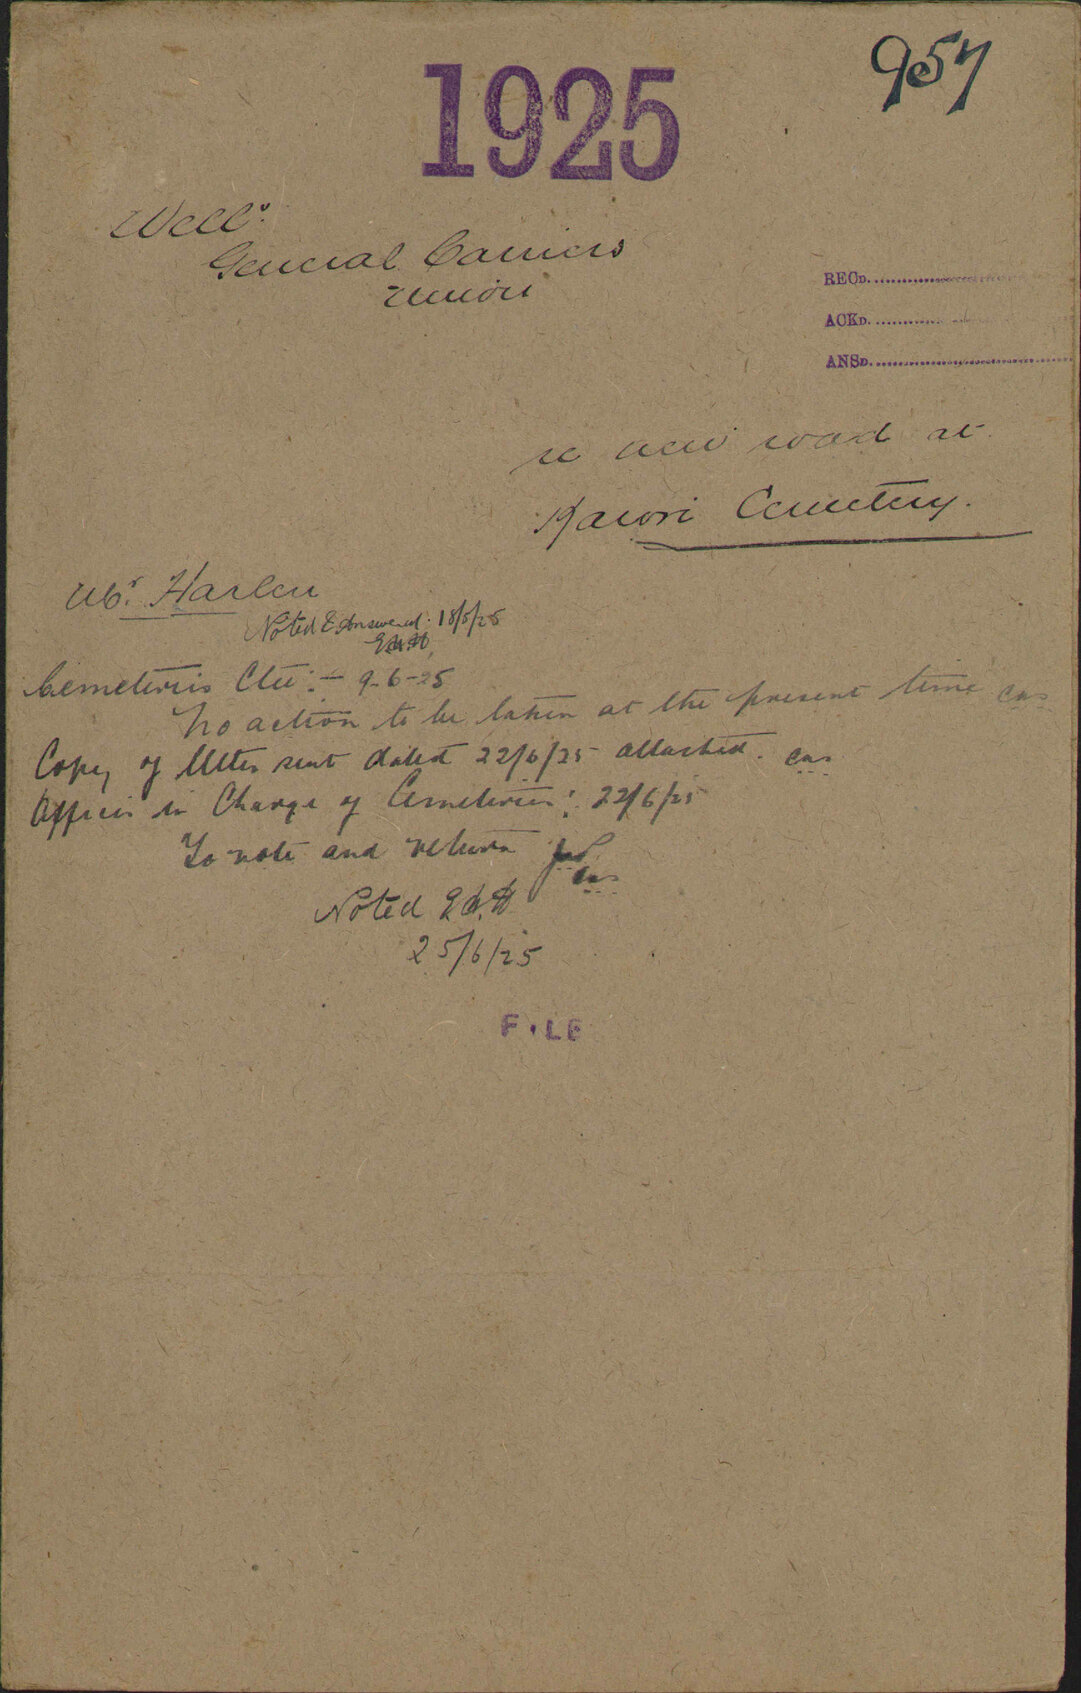 957
1925
Well:
General Carriers
Union
RECD.
ACKD.
ANSD.
re new road at
Karori Cemetery.
Mr. Harlen
Noted & Answered. 18/5/25
Cemeteries Ctee: - 9-6-25
No action to be taken at the present time
Copy of letter sent dated 22/6/25 attached.
Officer in Charge of Cemeteries: 22/6/25
To note and return
Noted
25/6/25
F·LE